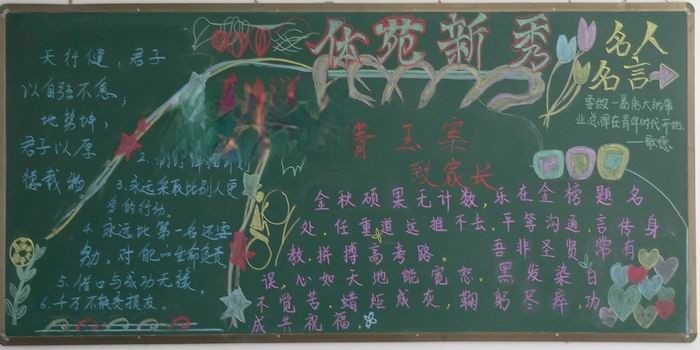 体苑新秀
天行健,君子
以自强不息,
地势坤,
君子以厚
德载物。
3.永远采取比别人更
多的行动。
4.永远比第一名还要
努。对能以生命负责
5.借口与成功无缘。
6.千万不能丢损友。
青玉案
致家长
金秋硕果无计数,乐在金榜题名
处。任重道远推不去。平等沟通,言传身
教。拼搏高考路。 吾非圣贤常有
误,心如天地能宽恕。黑发染白
不觉苦。蜡炬成灰,鞠躬尽瘁,功
成共祝福。
名人
名言
要做一高伟大的事
业总得在青年时代开始。
——歌德